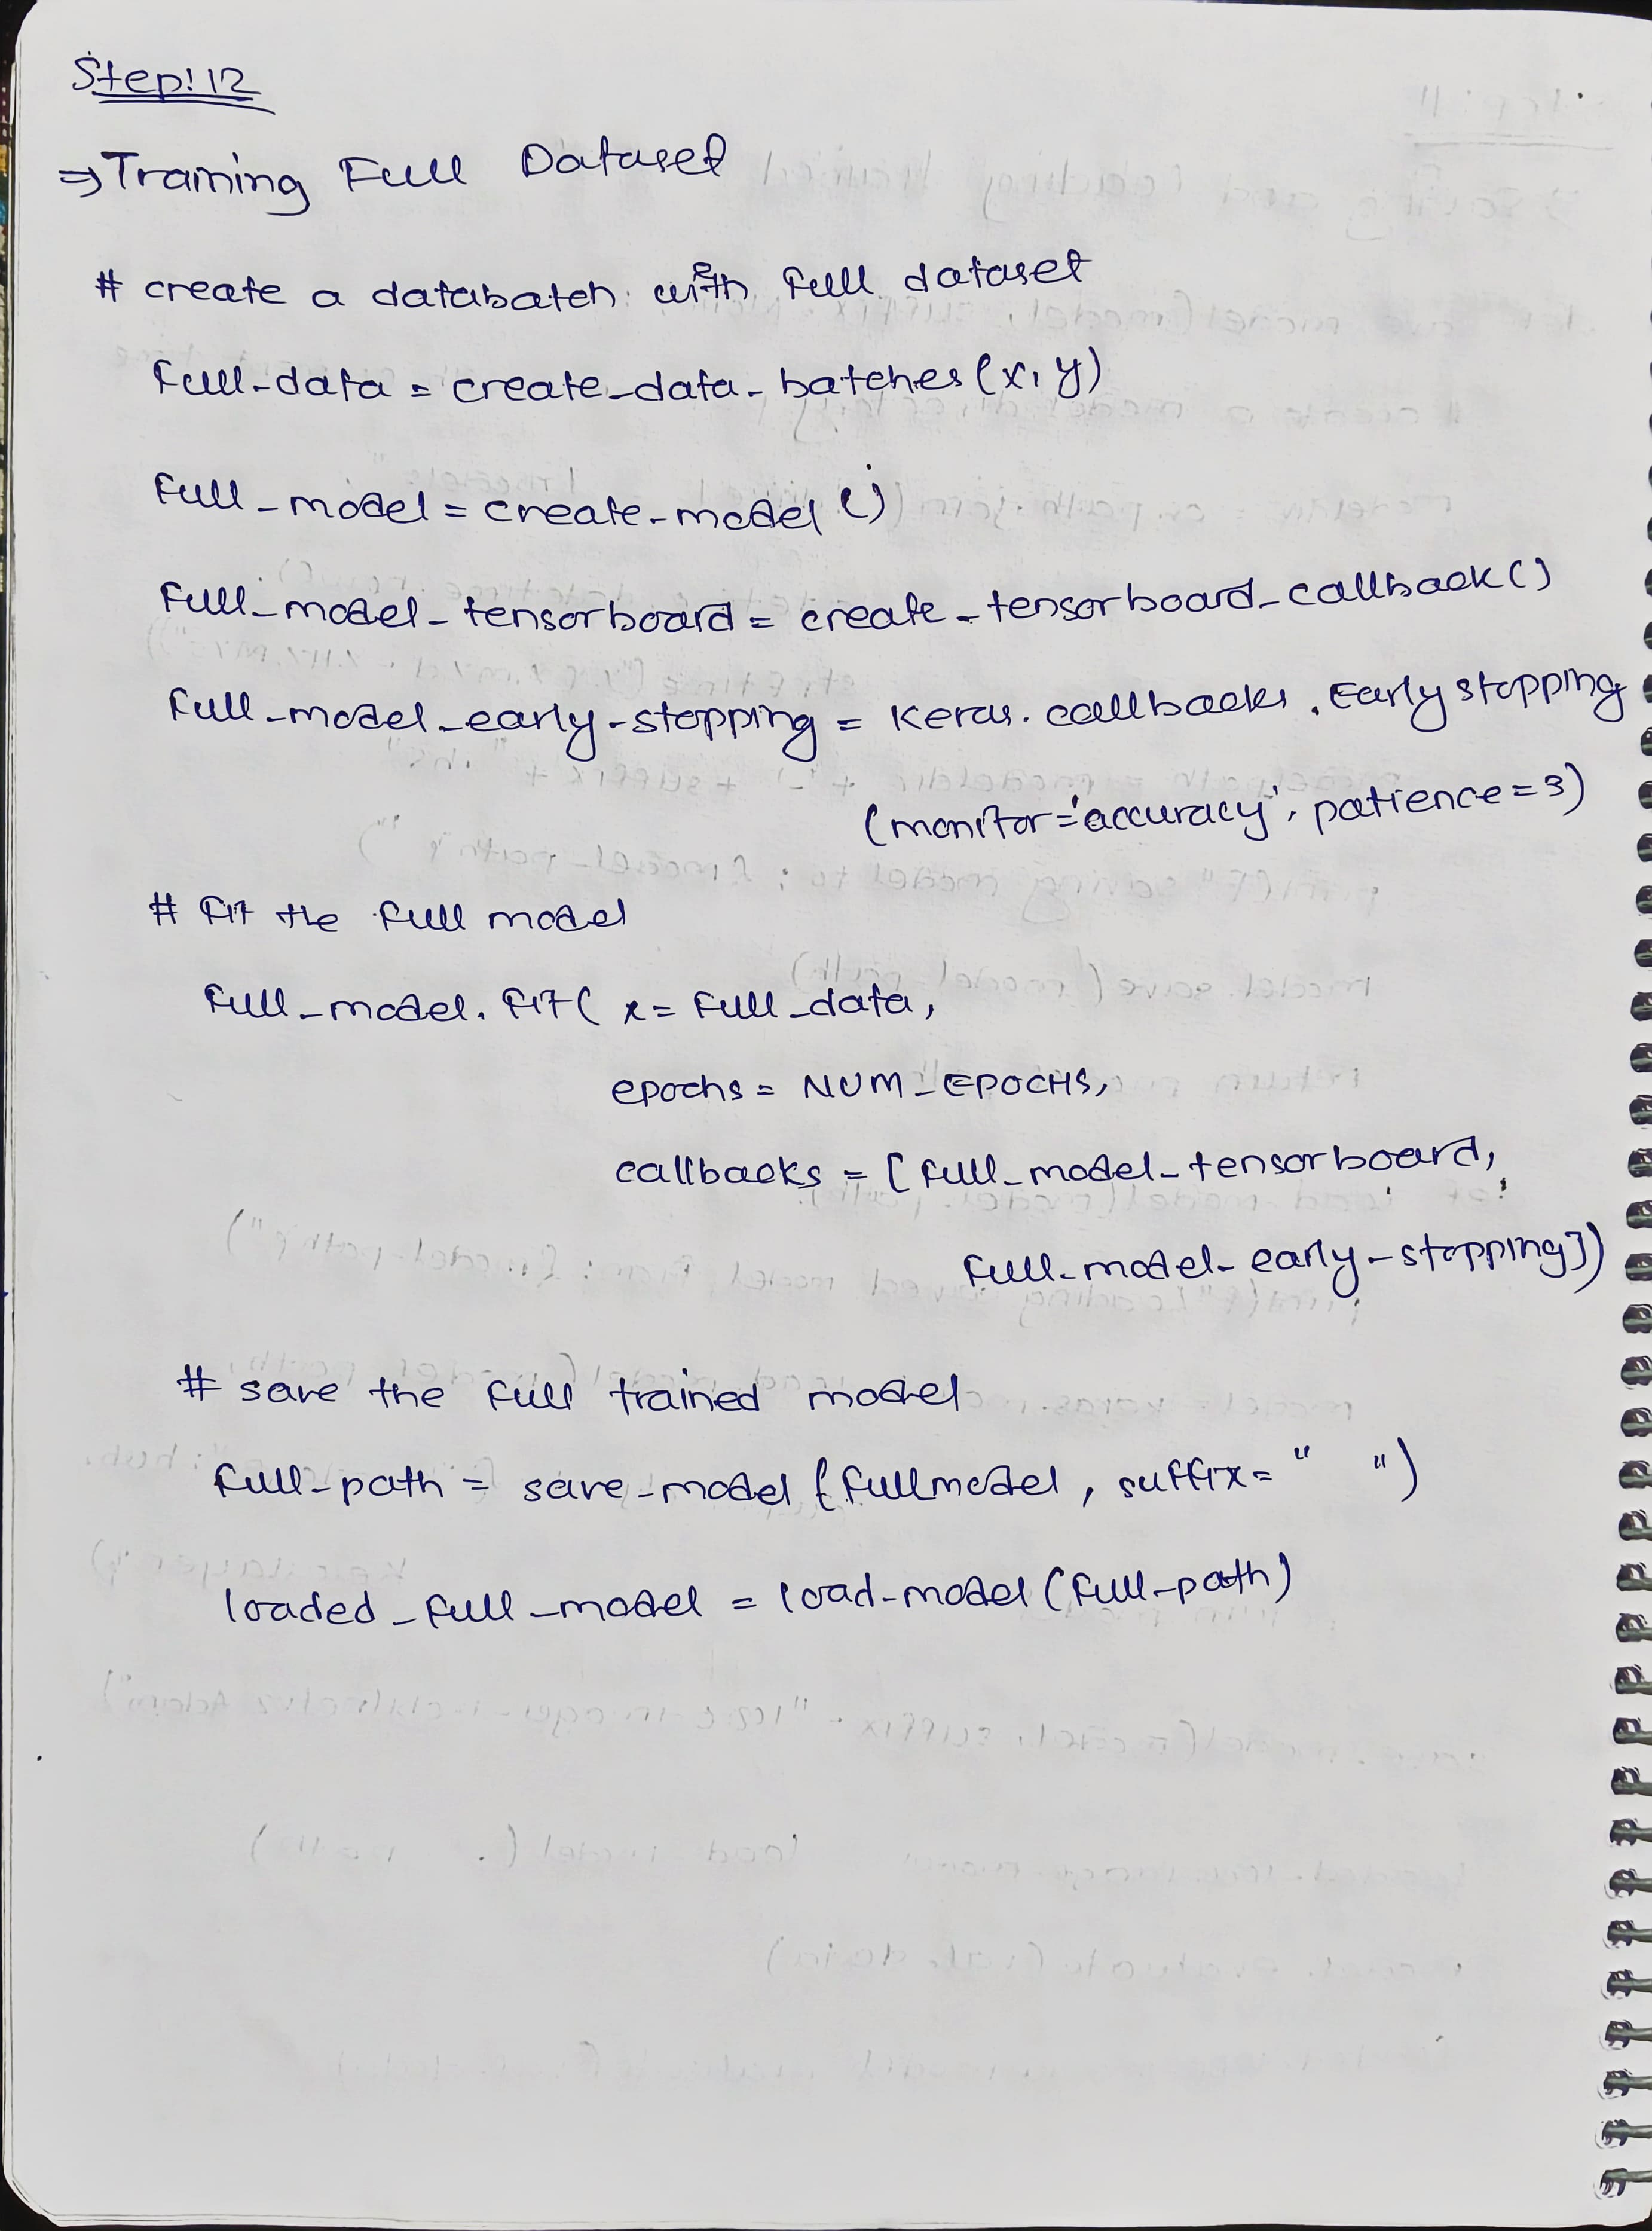 Step:12
⇒ Training Full Dataset
# create a databatch with full dataset
full_data = create_data_batches(x,y)
full_model = create_model()
full_model_tensorboard = create_tensorboard_callback()
full_model_early_stopping = keras.callbacks.Earlystopping
(monitor='accuracy', patience=3)
# fit the full model
full_model.fit( x= full_data,
epochs = NUM_EPOCHS,
callbacks = [full_model_tensorboard,
full_model_early_stopping])
# save the full trained model
full_path = save_model(fullmodel, suffix=" ")
loaded_full_model = load_model(full_path)